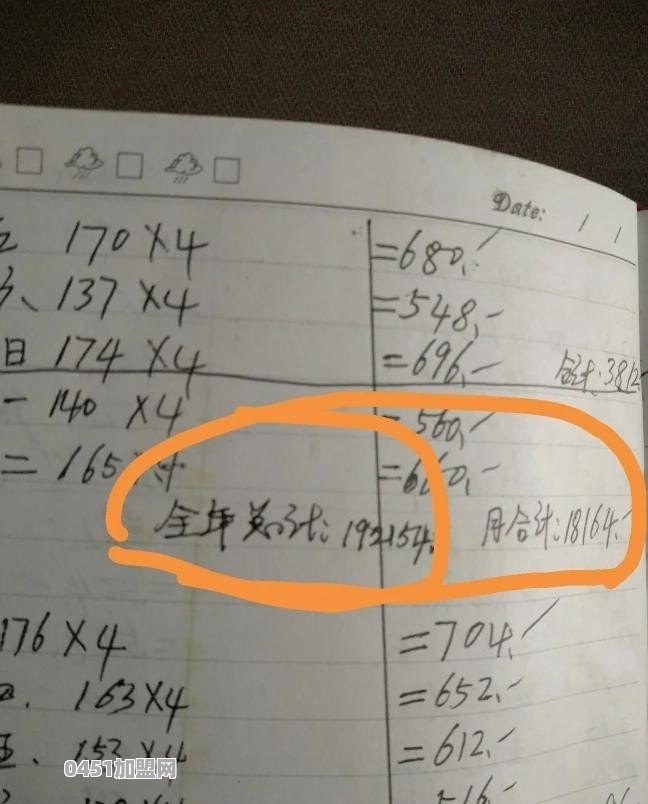 Date: / /
五 170×4 =680.-
、137×4 =548.-
日 174×4 =696.- 合计:3812-
一 140 ×4 =560.-
二 165×4 =660.-
全年总计:192154. 月合计:18164.-
176×4 =704.-
四. 163×4 =652.-
五、153×4 =612.-
0451加盟网
=516.-